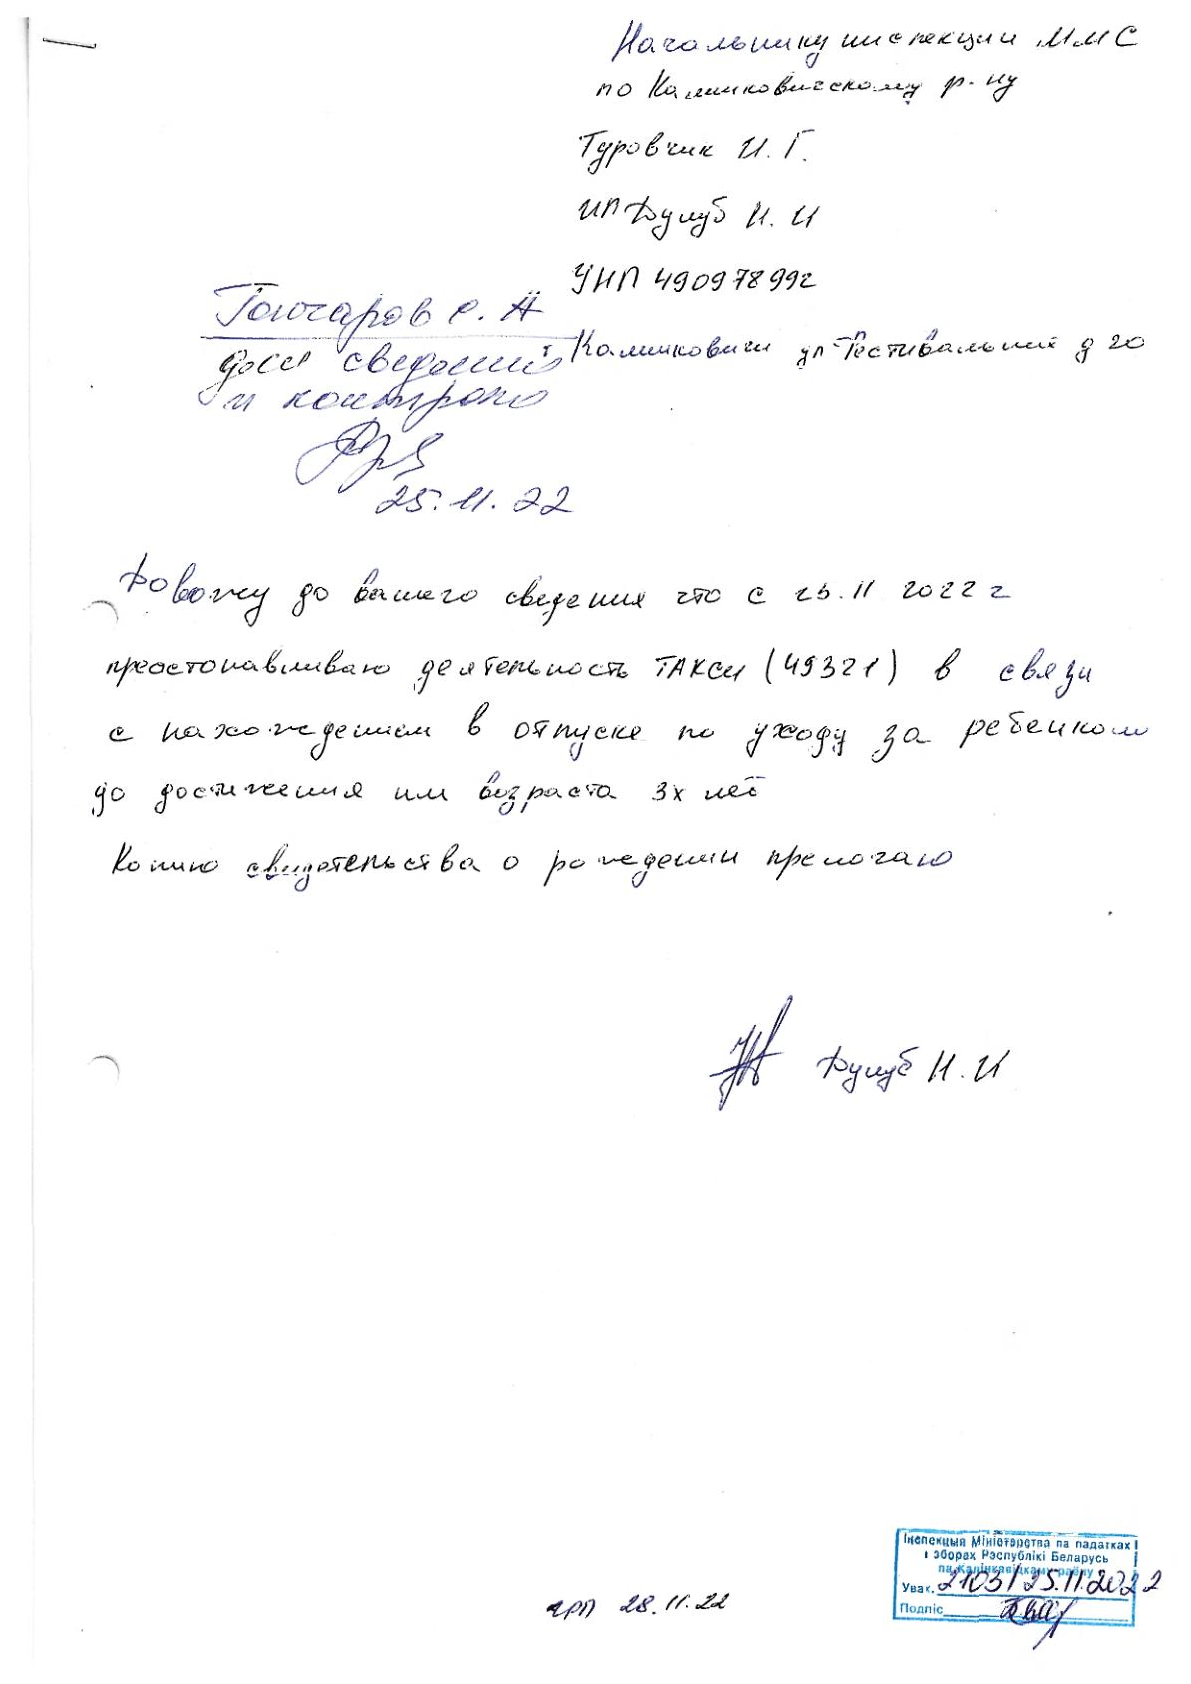 Начальнику инспекции ИМНС
по Калинковичскому р-ну
Туровчик И. Г.
ИП Дулуб Н. И
УНП 490978992
г Калинковичи ул Фестивальная д 20
Гончаров С. А
для сведения
и контроля
25.11.22
Довожу до вашего сведения что с 25.11 2022 г
преостонавливаю деятельность ТАКСИ (49321) в связи
с нахождением в отпуске по уходу за ребенком
до достижения им возраста 3х лет
Копию свидетельства о рождении прелогаю
Дулуб Н. И
Інспекцыя Міністэрства па падатках
і зборах Рэспублікі Беларусь
па Калінкавіцкаму раёну
Увах. 2103/25.11.2022
Подпіс
28.11.22